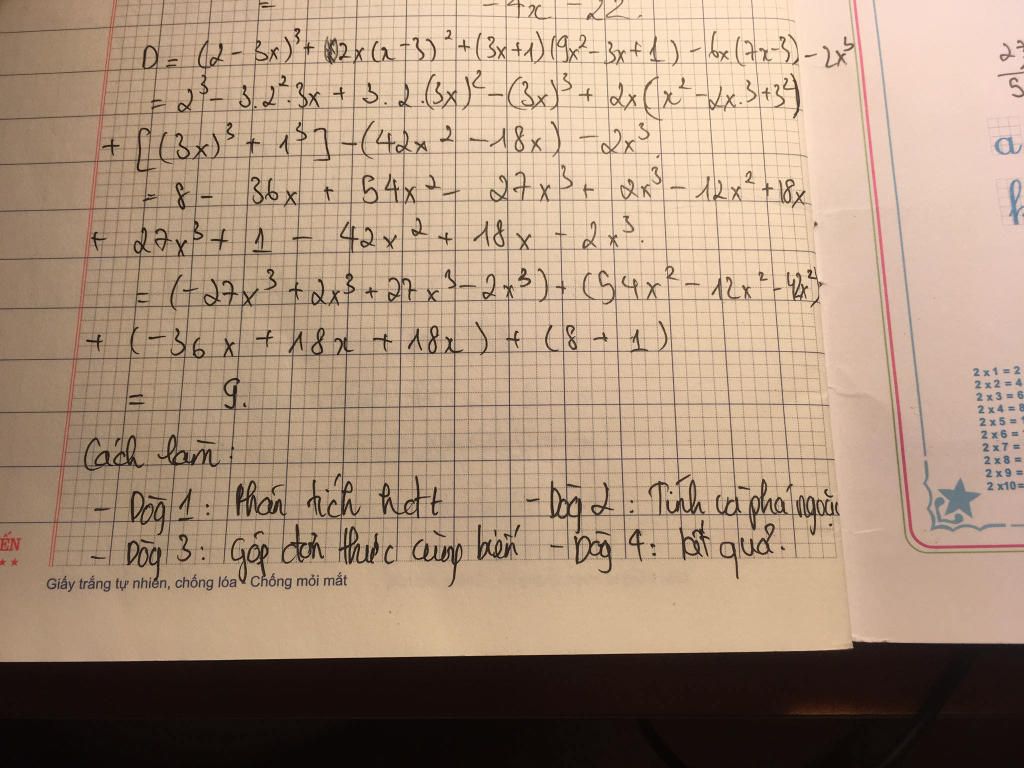 = - 4x - 22.
D = (2 - 3x)³ + 2x(x - 3)² + (3x+1)(9x² - 3x + 1) - 6x(7x-3) - 2x³
= 2³ - 3.2².3x + 3.2.(3x)² - (3x)³ + 2x(x² - 2x.3 + 3²)
+ [(3x)³ + 1³] - (42x² - 18x) - 2x³
= 8 - 36x + 54x² - 27x³ + 2x³ - 12x² + 18x
+ 27x³ + 1 - 42x² + 18x - 2x³.
= (-27x³ + 2x³ + 27x³ - 2x³) + (54x² - 12x² - 42x²)
+ (-36x + 18x + 18x) + (8 + 1)
= 9.
Cách làm:
- Dòg 1: Phân tích hđt - Dòg 2: Tính và phá ngoặc
- Dòg 3: Gộp đơn thức cùng biến - Dòg 4: kết quả.
ẾN
Giấy trắng tự nhiên, chống lóa - Chống mỏi mắt
27
5
a
2 x 1 = 2
2 x 2 = 4
2 x 3 = 6
2 x 4 = 8
2 x 5 = 1
2 x 6 =
2 x 7 =
2 x 8 =
2 x 9 =
2 x 10=